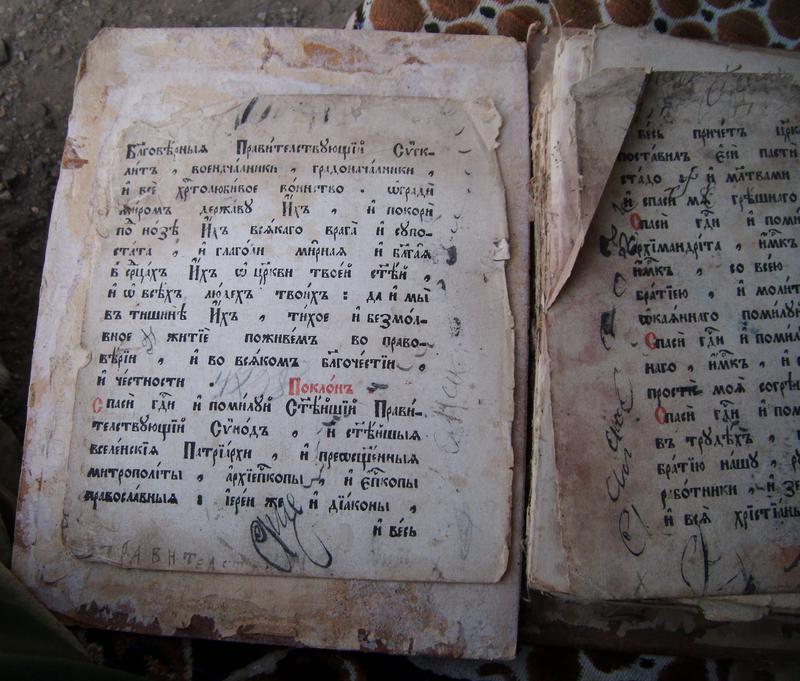 Бл҃говѣ́рныѧ Прави́тельствующїй Сѷгк-
ли́тъ , военача́лники , градонача́лники ,
и҆ всѐ хрⷭ҇толюби́вое во́инство . ѡ҆градѝ
ми́ромъ держа́вꙋ И҆́хъ , и҆ покорѝ
по́д но́зѣ И҆́хъ всѧ́каго врага̀ и҆ сꙋпо-
ста́та , и҆ глаго́ли ми̑рнаѧ и҆ бл҃га̑ѧ
въ срⷣца́хъ И҆́хъ ѡ҆ цр҃кви твое́й ст҃ѣ́й ,
и҆ ѡ҆ всѣ́хъ лю́дехъ твои́хъ : да и҆ мы̀
въ тишинѣ̀ И҆́хъ , ти́хое и҆ безмо́л-
вное житїѐ поживе́мъ во право-
вѣ́рїи , и҆ во всѧ́комъ бл҃гоче́стїи ,
и҆ че́стности . Покло́нъ
Спасѝ гдⷭ҇и и҆ поми́лꙋй Ст҃ѣ́йшїй Прави́-
телствꙋющїй Сѷно́дъ , и҆ ст҃ѣ́йшыѧ
вселе́нскїѧ Патрїа́рхи , и҆ преѡсщ҃е́нныѧ
митрополі́ты , а҆рхїепⷭ҇копы , и҆ Е҆пⷭ҇копы
правосла́вныѧ : і҆ере́и же и҆ дїа́коны ,
и҆ ве́сь
правителст
ве́сь при́четъ
поста́вилъ є҆сѝ пасти́
ста́до : и҆ мл҃твами
и҆ спасѝ мѧ̀ грѣ́шнаго
Спасѝ гдⷭ҇и и҆
А҆рхїмандрі́та , и҆́мкъ
и҆́мкъ , со все́ю
бра́тїею , и҆
ѡ҆каѧ́ннаго поми́лꙋй
Спасѝ гдⷭ҇и и҆
наго , и҆́мкъ , и҆
простѝ моѧ̑
Спасѝ гдⷭ҇и и҆
въ трꙋдѣ́хъ ,
бра́тїю на́шꙋ ,
рабо́тники , и҆
и҆ всѧ̑